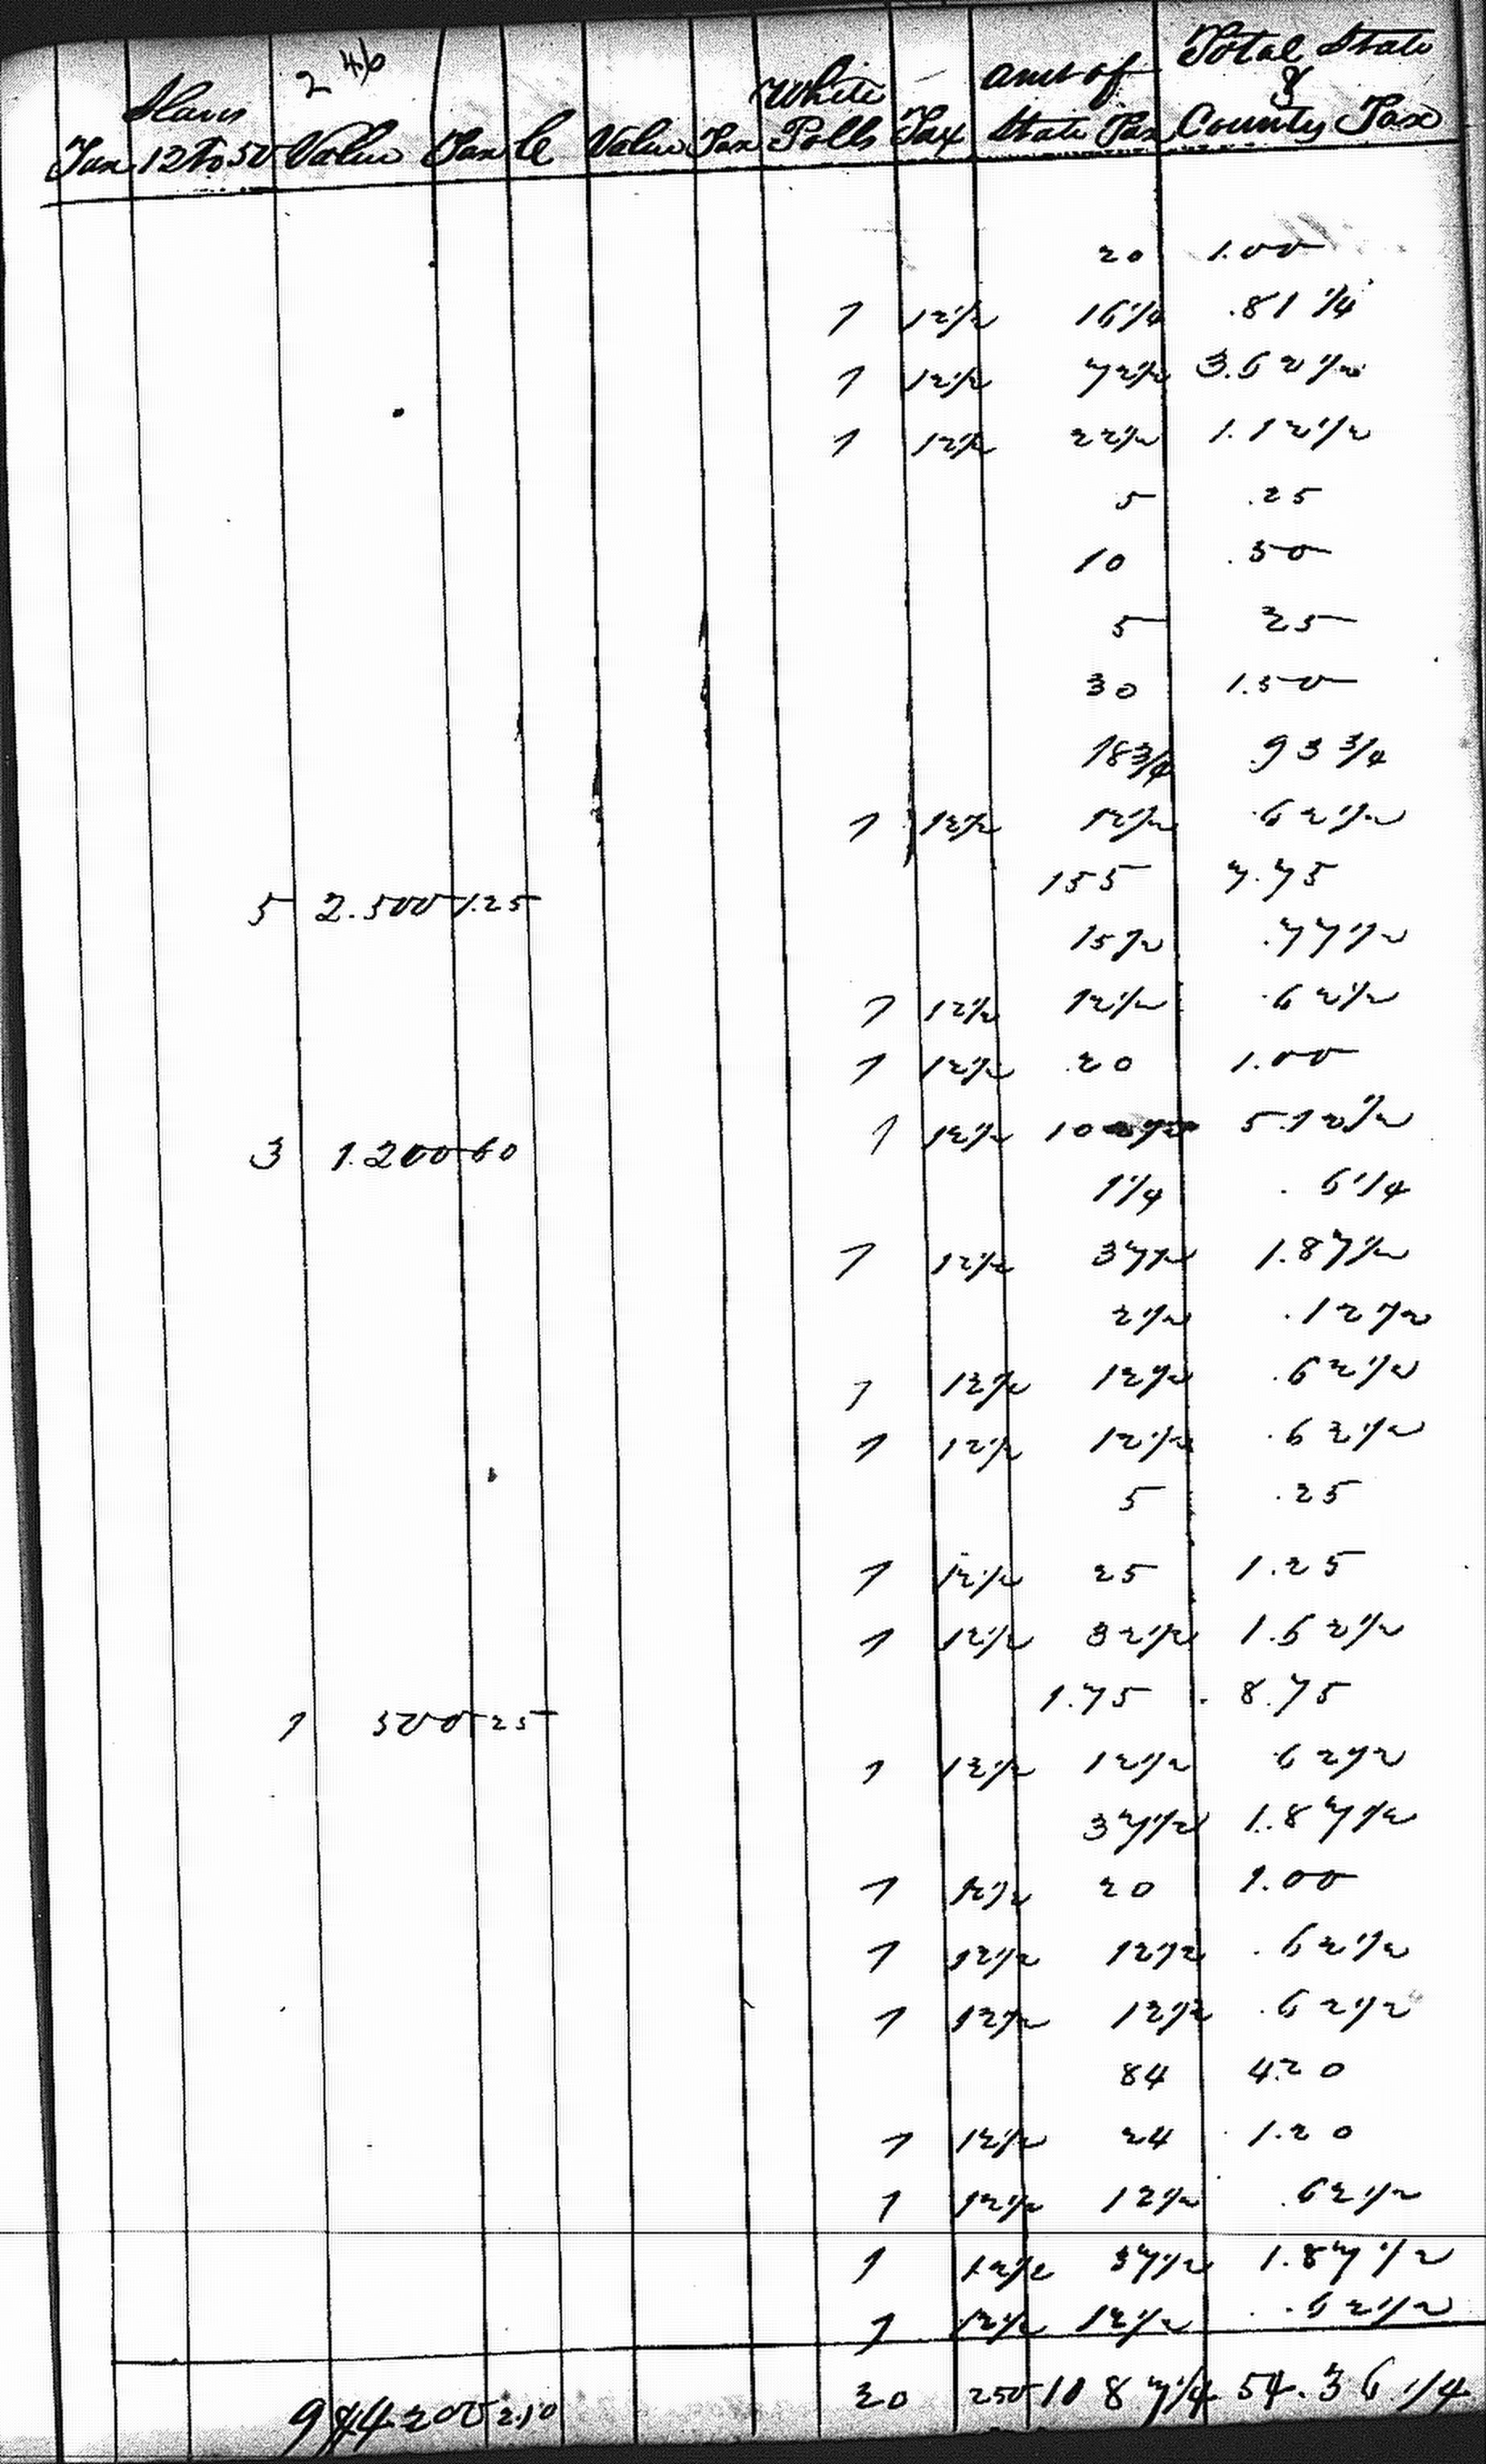 2 46
Slaves White amt of Total State
&
Tax 12 to 50 Value Tax C Value Tax Polls Tax State Tax County Tax
20 1.00
1 12 1/2 16 1/4 .81 1/4
1 12 1/2 72 1/2 3.62 1/2
1 12 1/2 22 1/2 1.12 1/2
5 .25
10 .50
5 25
30 1.50
18 3/4 .93 3/4
1 12 1/2 12 1/2 .62 1/2
5 2.500 1.25 155 7.75
15 1/2 .77 1/2
1 12 1/2 12 1/2 .62 1/2
1 12 1/2 20 1.00
3 1.200 60 1 12 1/2 10 5.12 1/2
1 1/4 .6 1/4
1 12 1/2 37 1/2 1.87 1/2
2 1/2 .12 1/2
1 12 1/2 12 1/2 .62 1/2
1 12 1/2 12 1/2 .62 1/2
5 .25
1 12 1/2 25 1.25
1 12 1/2 32 1/2 1.62 1/2
1 500 25 1.75 8.75
1 12 1/2 12 1/2 62 1/2
37 1/2 1.87 1/2
1 12 1/2 20 1.00
1 12 1/2 12 1/2 .62 1/2
1 12 1/2 12 1/2 .62 1/2
84 4.20
1 12 1/2 24 1.20
1 12 1/2 12 1/2 .62 1/2
1 12 1/2 37 1/2 1.87 1/2
1 12 1/2 12 1/2 .62 1/2
9 $4.200 2.10 20 250 10 87 1/4 54.36 1/4